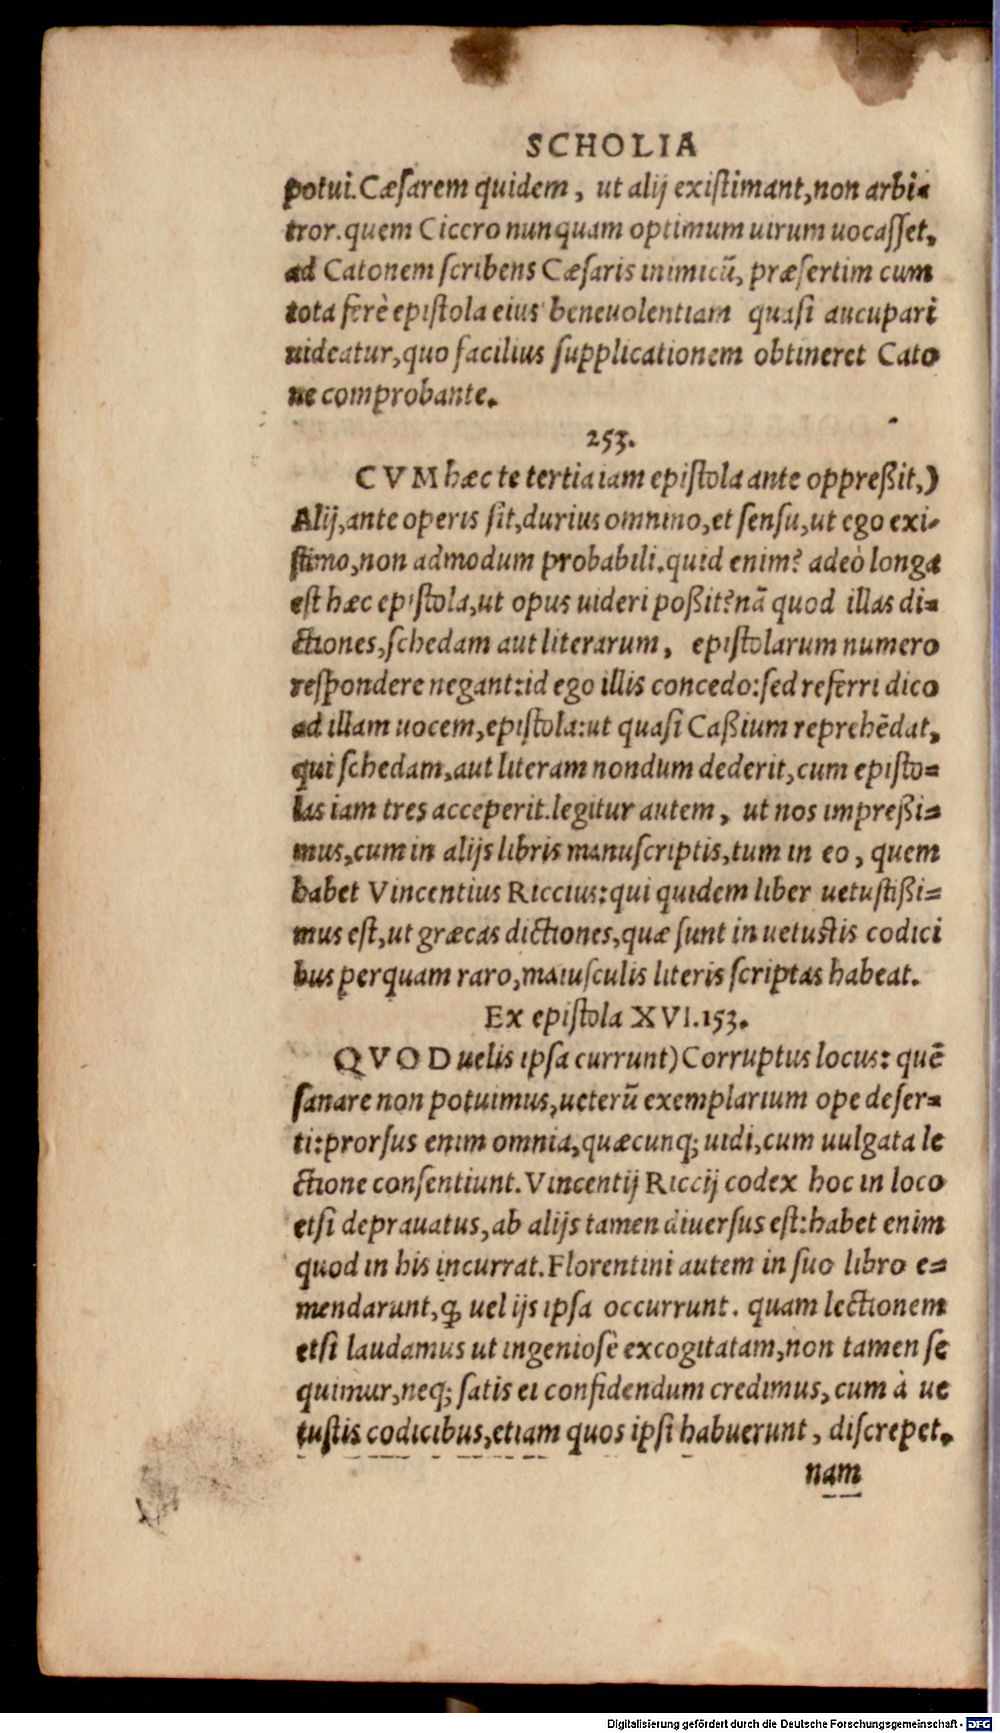 SCHOLIA
potui. Cæsarem quidem, ut alij existimant, non arbi-
tror. quem Cicero nunquam optimum uirum uocasset,
ad Catonem scribens Cæsaris inimicũ, præsertim cum
tota ferè epistola eius beneuolentiam quasi aucupari
uideatur, quo facilius supplicationem obtineret Cato
ne comprobante.
253.
CVM hæc te tertia iam epistola ante oppreßit,)
Alij, ante operis sit, durius omnino, et sensu, ut ego exi-
stimo, non admodum probabili. quid enim? adeò longa
est hæc epistola, ut opus uideri poßit? nã quod illas di-
ctiones, schedam aut literarum, epistolarum numero
respondere negant: id ego illis concedo: sed referri dico
ad illam uocem, epistola: ut quasi Caßium reprehẽdat,
qui schedam, aut literam nondum dederit, cum episto-
las iam tres acceperit. legitur autem, ut nos impreßi-
mus, cum in alijs libris manuscriptis, tum in eo, quem
habet Vincentius Riccius: qui quidem liber uetustißi-
mus est, ut græcas dictiones, quæ sunt in uetustis codici
bus perquam raro, maiusculis literis scriptas habeat.
Ex epistola XVI. 153.
QVOD uelis ipsa currunt) Corruptus locus: quẽ
sanare non potuimus, ueterũ exemplarium ope deser-
ti: prorsus enim omnia, quæcunq; uidi, cum uulgata le
ctione consentiunt. Vincentij Riccij codex hoc in loco
etsi deprauatus, ab alijs tamen diuersus est: habet enim
quod in his incurrat. Florentini autem in suo libro e-
mendarunt, ꝙ uel ijs ipsa occurrunt. quam lectionem
etsi laudamus ut ingeniosè excogitatam, non tamen se
quimur, neq; satis ei confidendum credimus, cum à ue
tustis codicibus, etiam quos ipsi habuerunt, discrepet.
nam
Digitalisierung gefördert durch die Deutsche Forschungsgemeinschaft - DFG